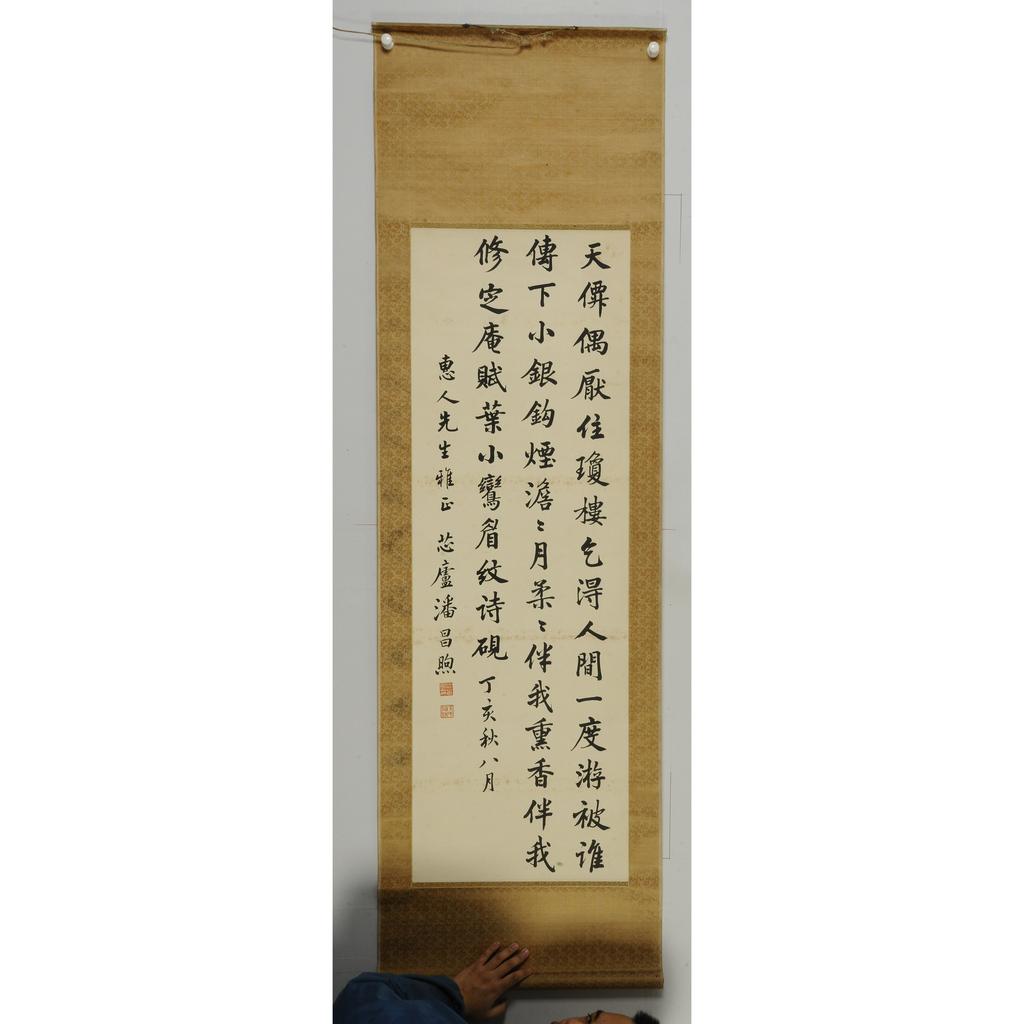 天僊偶厭住瓊樓乞得人間一度游被誰
傳下小銀鈎煙澹〻月柔〻伴我熏香伴我
修定庵賦葉小鸞眉紋詩硯丁亥秋八月
惠人先生雅正 芯廬潘昌煦